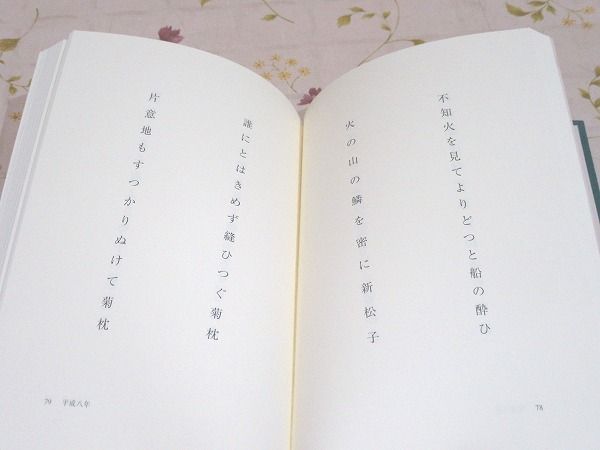 不知火を見てよりどつと船の酔ひ
火の山の鱗を密に新松子
78
誰にとはきめず縫ひつぐ菊枕
片意地もすつかりぬけて菊枕
79 平成八年